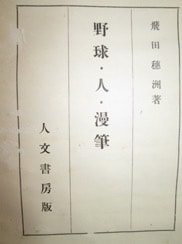 飛田穂洲著
野球・人・漫筆
人文書房版